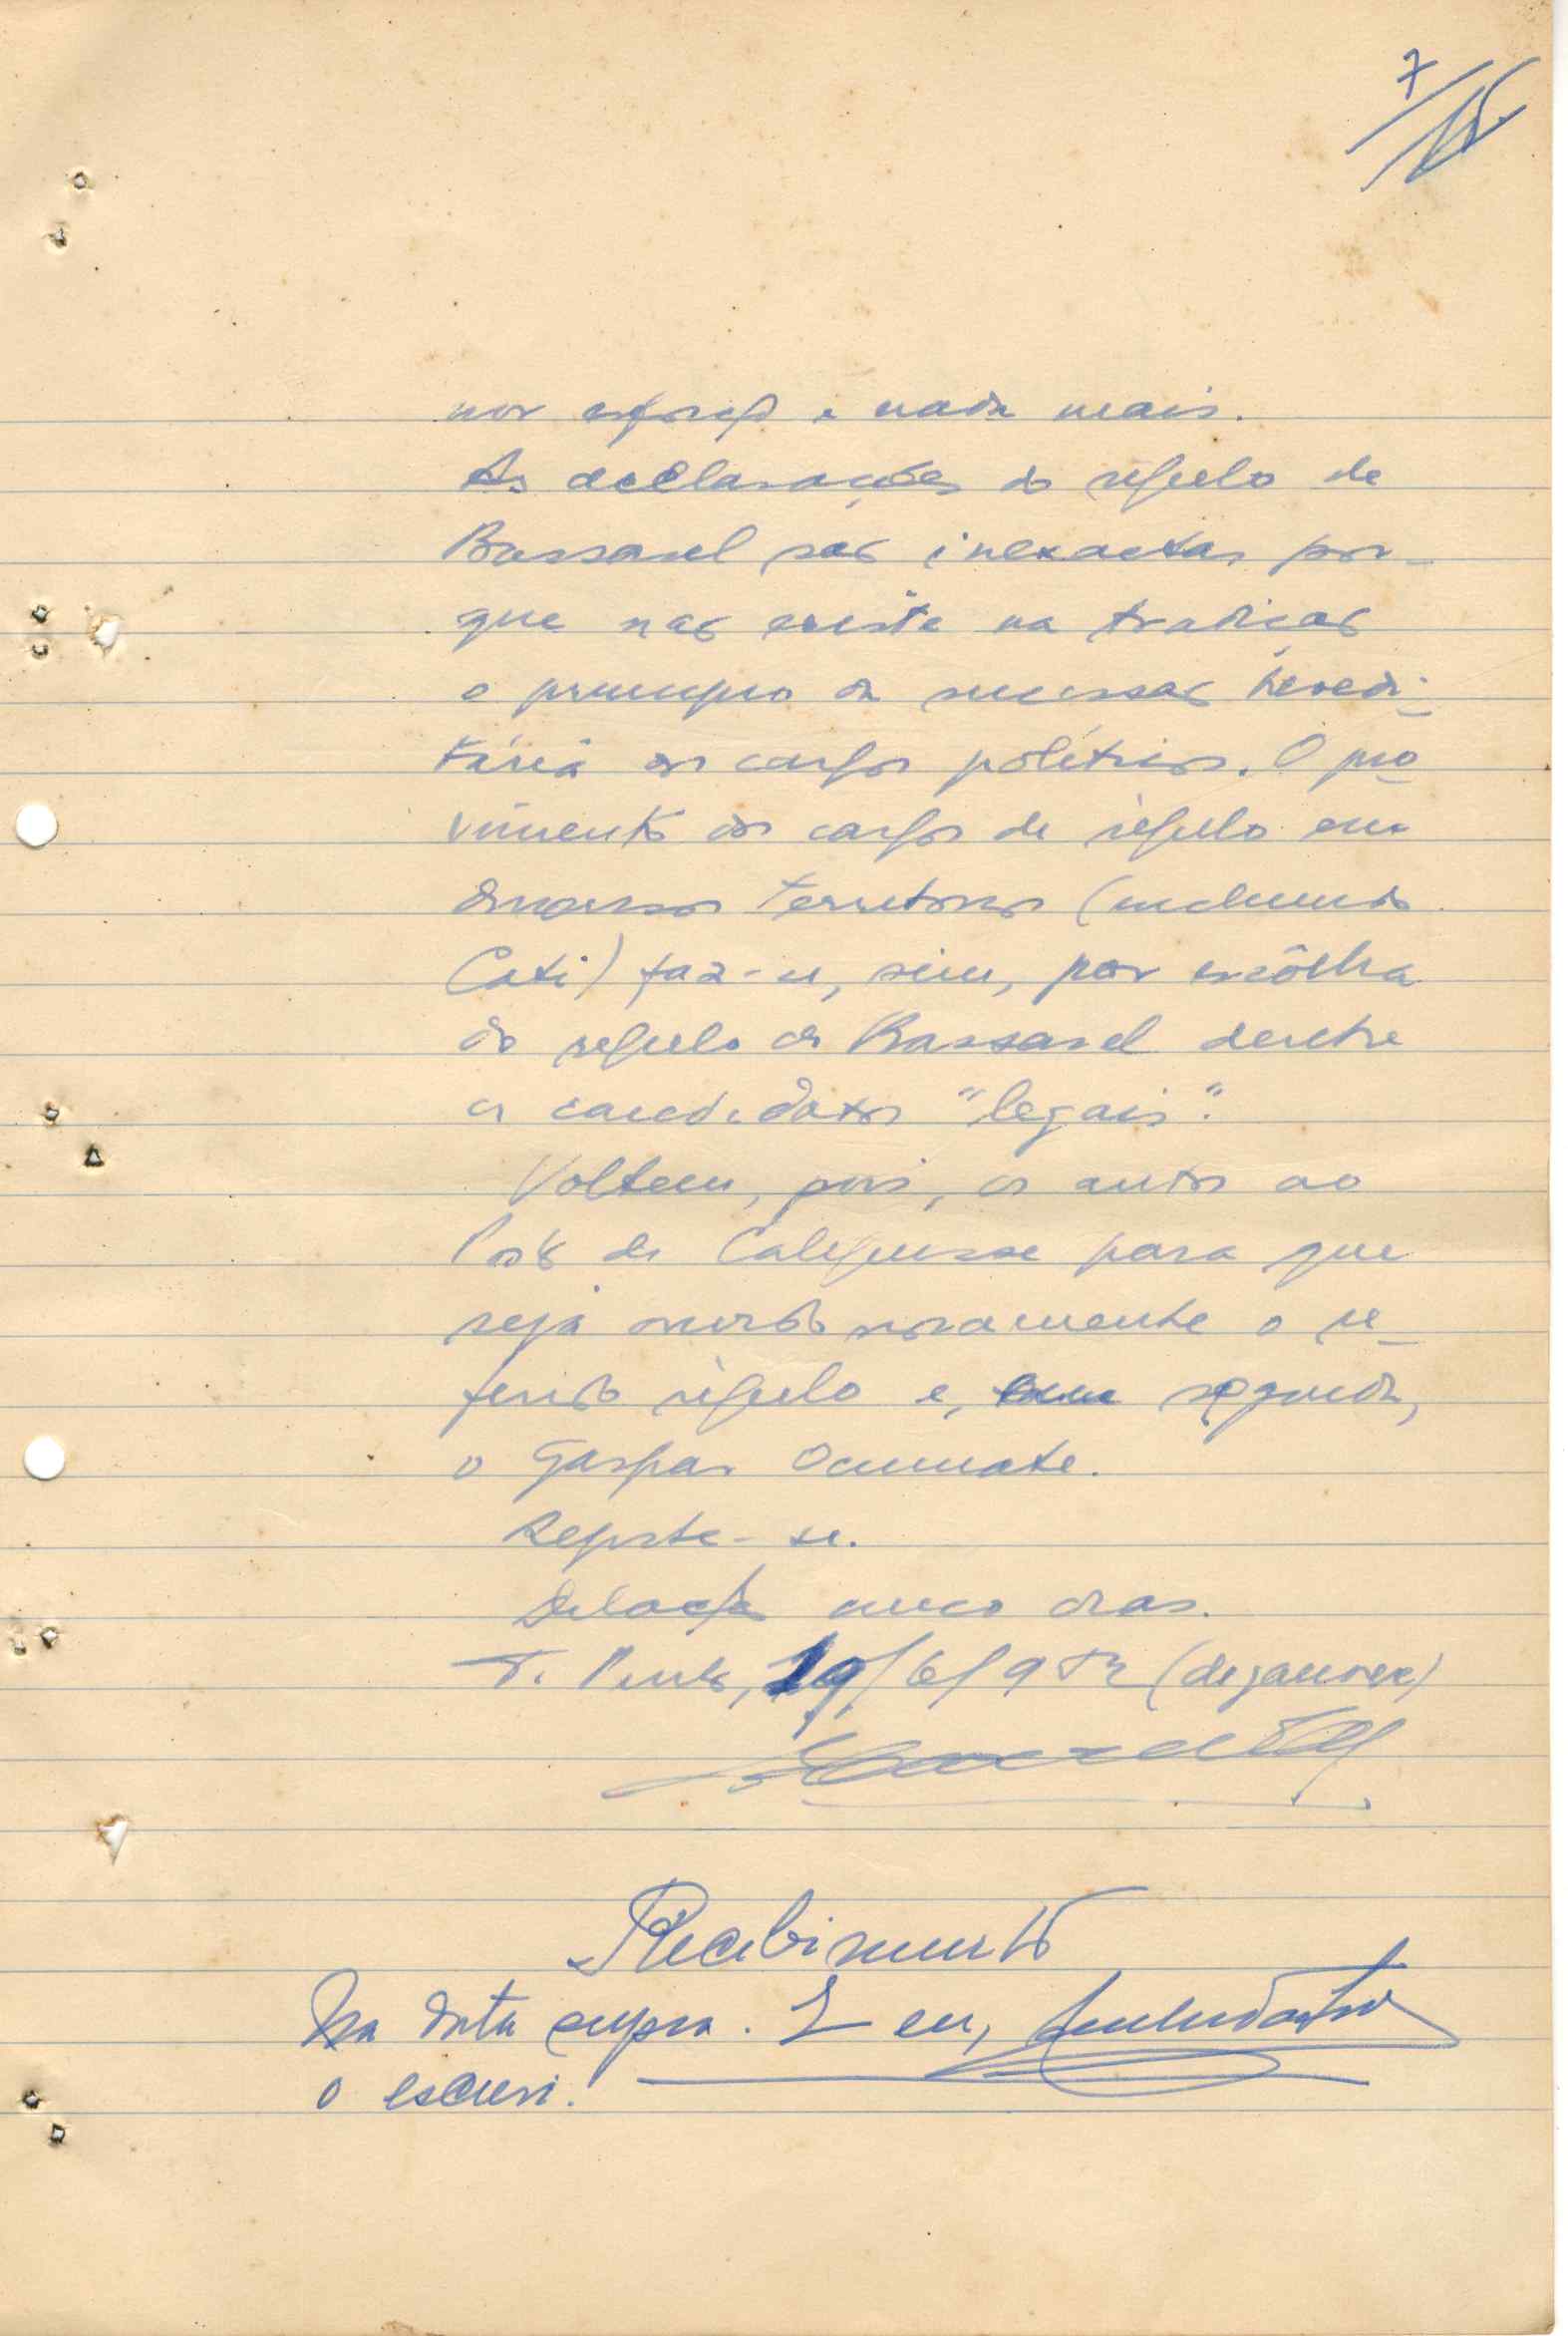 7
nor esforço e nada mais.
As declarações do régulo de
Bassarel são inexactas por-
que não existe na tradição
o princípio da sucessão heredi-
tária dos cargos políticos. O pro-
vimento dos cargos de régulo em
diversos territórios (incluindo
Cati) faz-se, sim, por escôlha
do régulo de Bassarel dentre
os candidatos "legais".
Voltem, pois, os autos ao
Posto de Calequisse para que
seja ouvido novamente o re-
ferido régulo e, em seguida,
o Gaspar
Reporte-se.
cinco dias.
T. Pinto, 19/6/952 (dezanove)
Recebimento
Na data supra. E eu,
o escrevi.